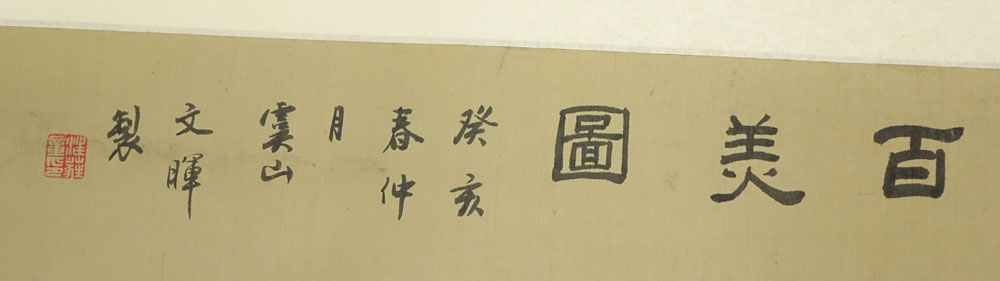 百美圖
癸亥
春仲
月
虞山
文暉
製